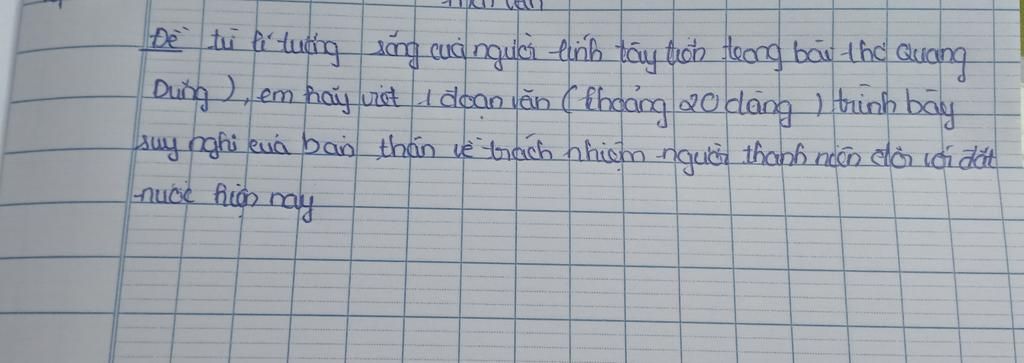 Đề từ lí tưởng sống của người lính tây tiến trong bài thơ Quang
Dũng), em hãy viết 1 đoạn văn (khoảng 20 dòng) trình bày
suy nghĩ của bản thân về trách nhiệm người thanh niên đối với đất
nước hiện nay